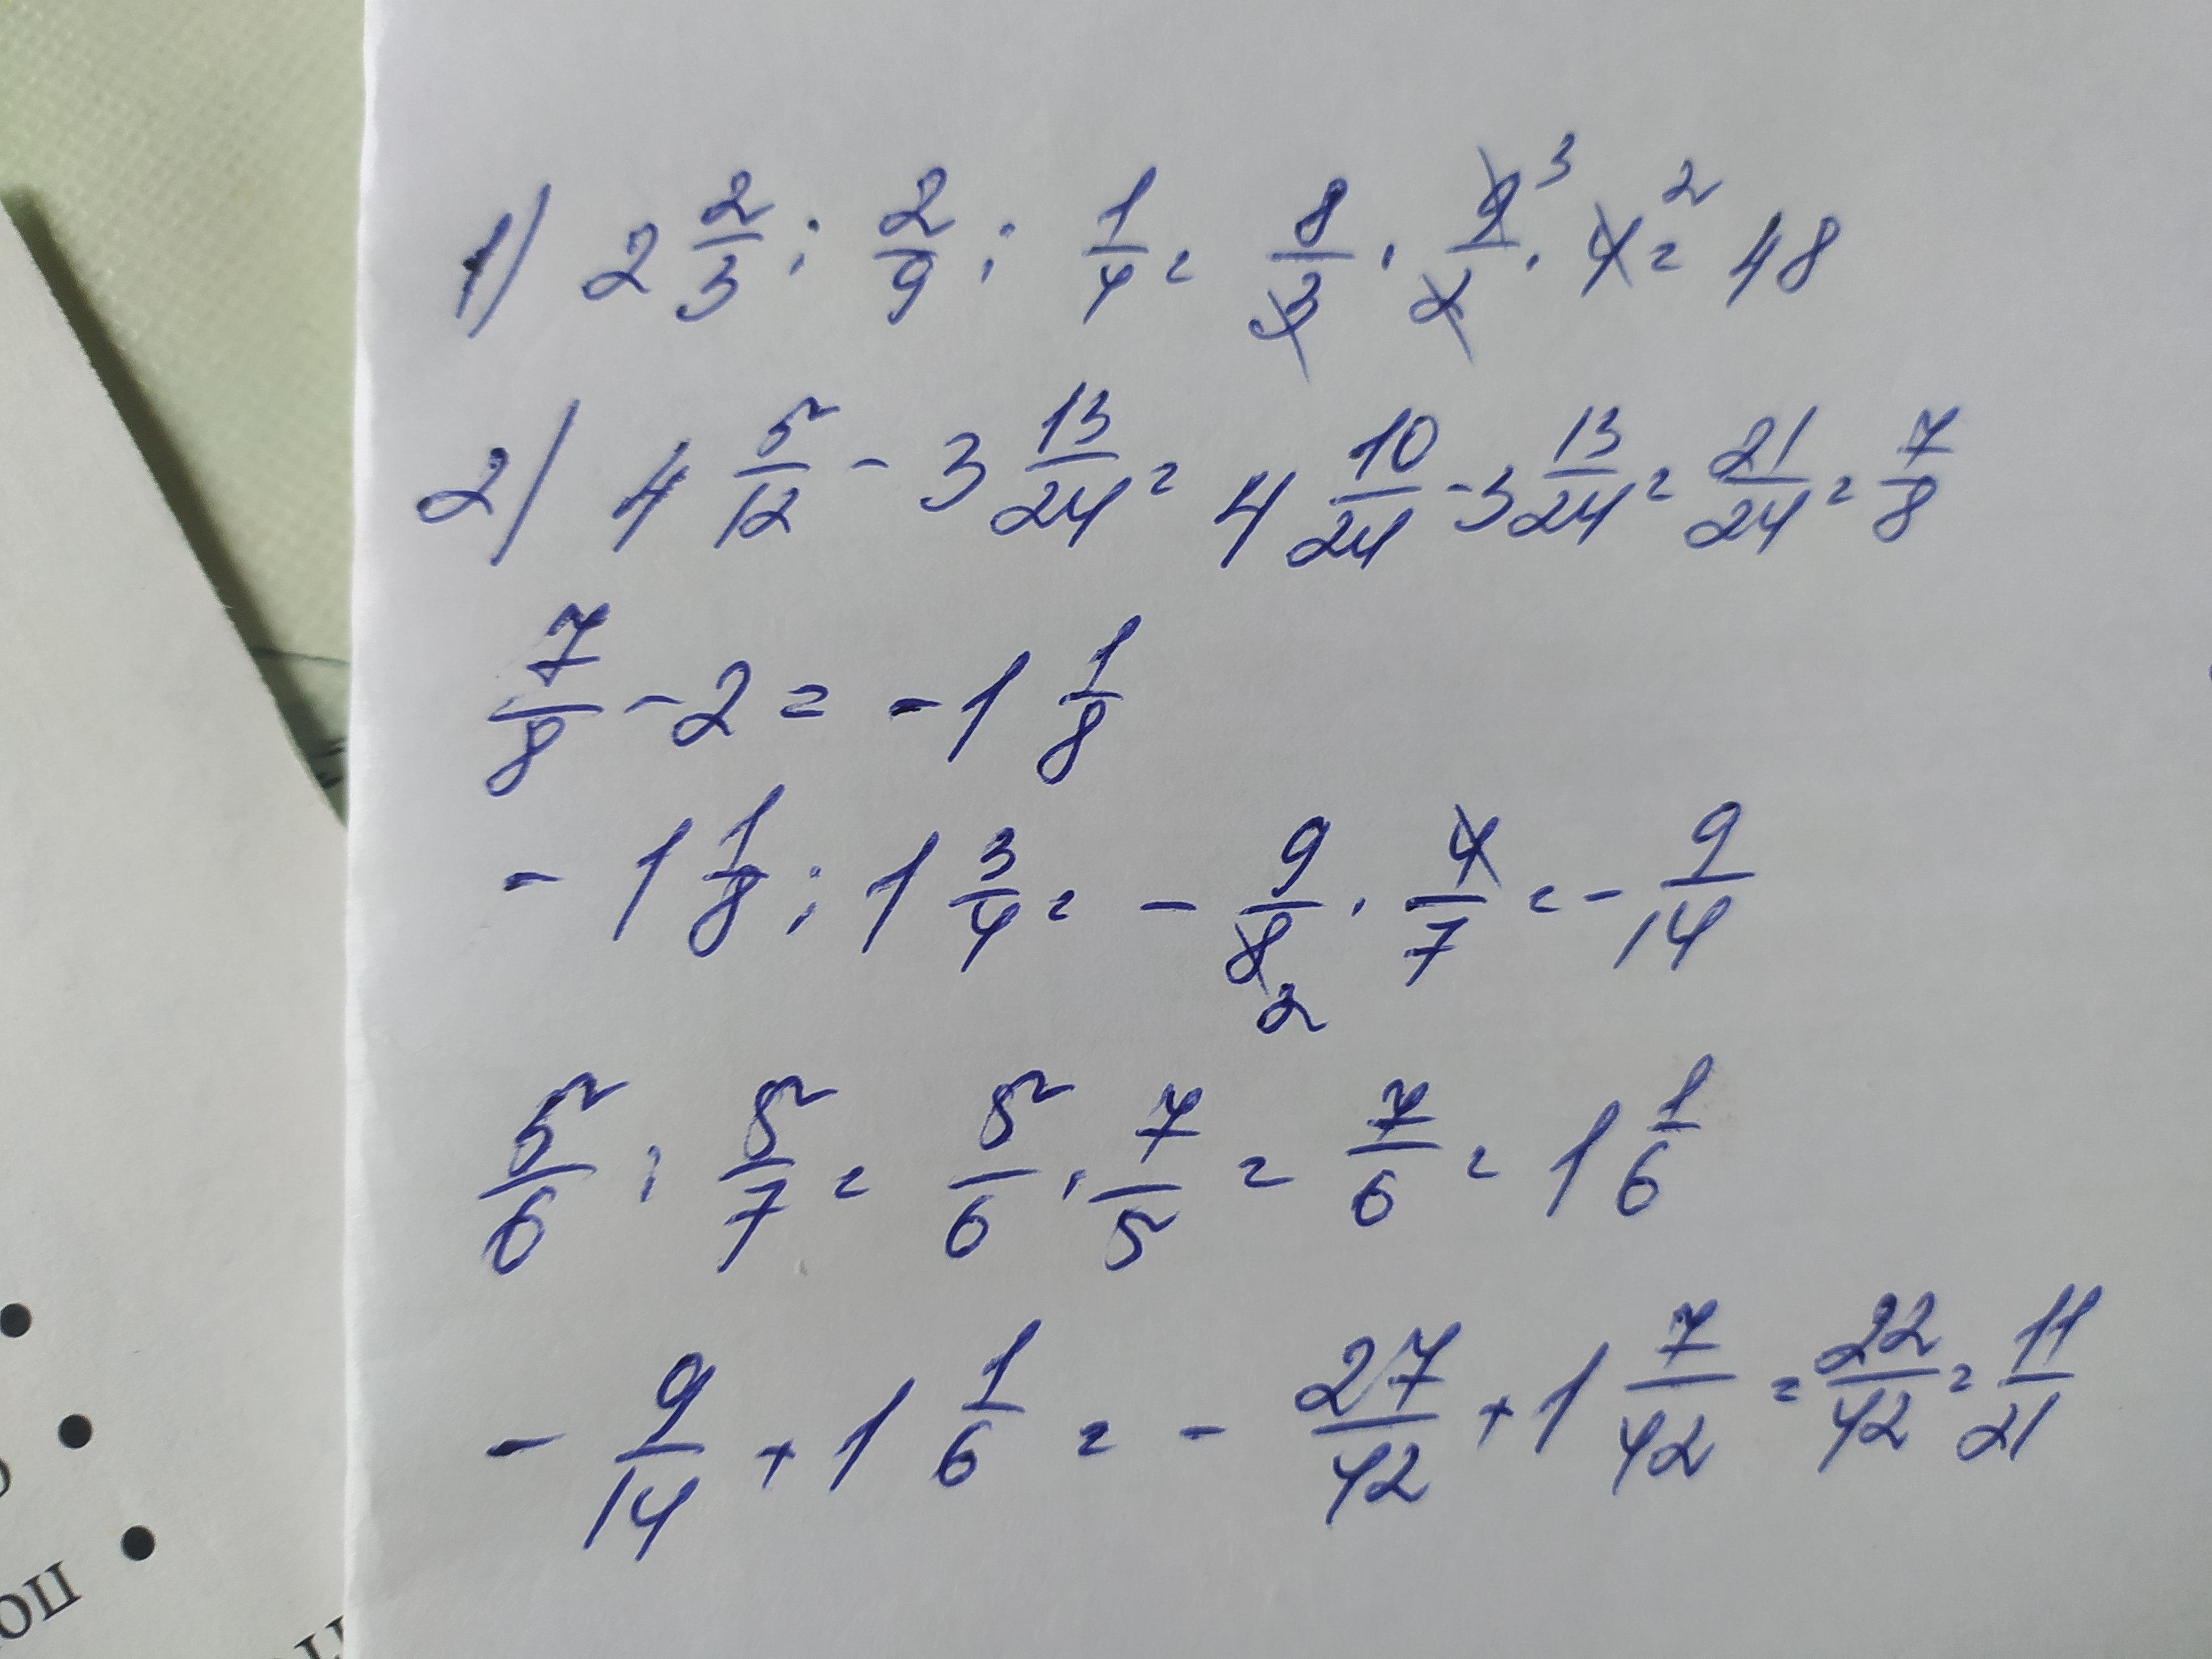 1) 2 2/3 : 2/9 : 1/4 = 8/3 · 9/2 3 · 4 2 = 48
2) 4 5/12 - 3 13/24 = 4 10/24 - 3 13/24 = 21/24 = 7/8
7/8 - 2 = - 1 1/8
- 1 1/8 : 1 3/4 = - 9/8 2 · 4/7 = - 9/14
5/6 : 5/7 = 5/6 · 7/5 = 7/6 = 1 1/6
- 9/14 + 1 1/6 = - 27/42 + 1 7/42 = 22/42 = 11/21